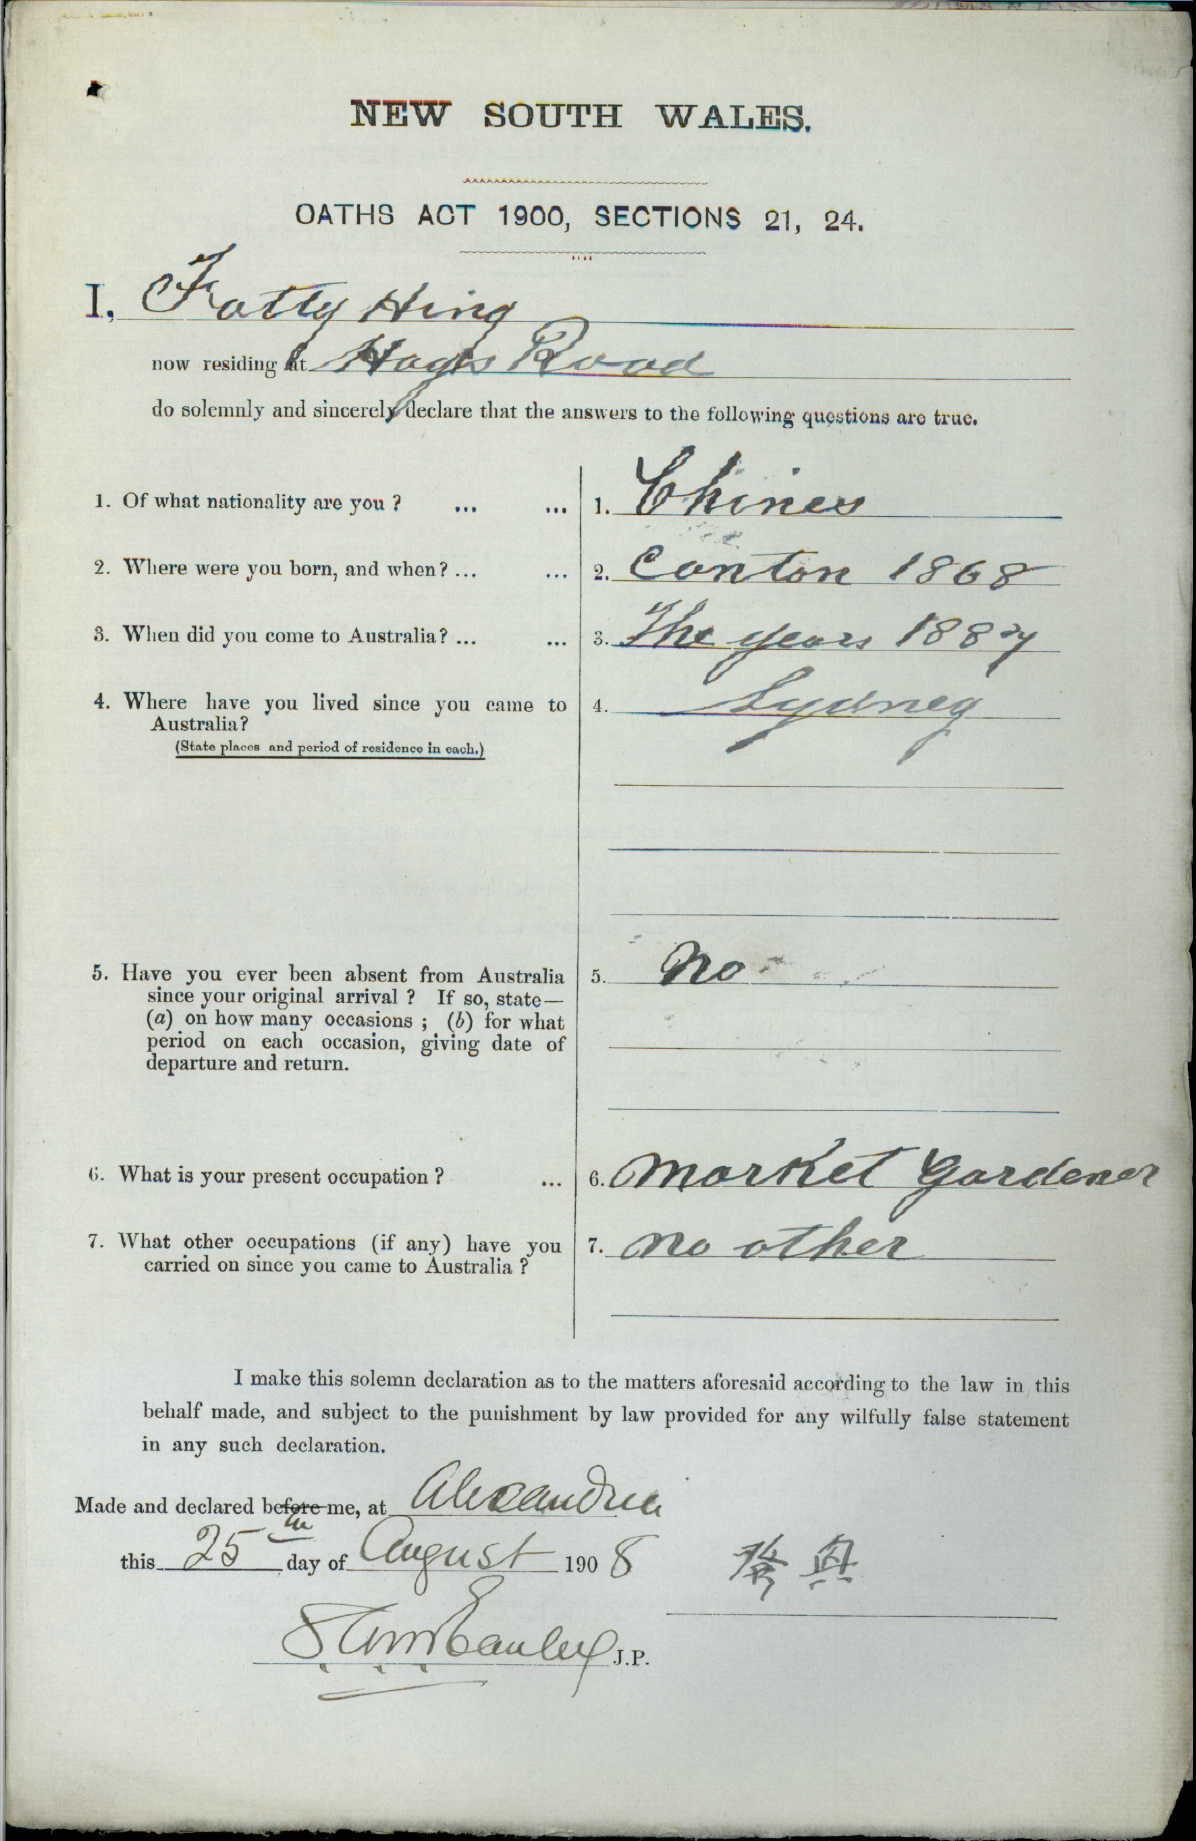 NEW SOUTH WALES.
OATHS ACT 1900, SECTIONS 21, 24.
I, Fatty Hing
now residing at Hays Road
do solemnly and sincerely declare that the answers to the following questions are true.
1. Of what nationality are you ? ... ... 1. Chines
2. Where were you born, and when? ... ... 2. Canton 1868
3. When did you come to Australia? ... ... 3. The years 1887
4. Where have you lived since you came to 4. Sydney
Australia?
(State places and period of residence in each.)
5. Have you ever been absent from Australia 5. No
since your original arrival ? If so, state—
(a) on how many occasions ; (b) for what
period on each occasion, giving date of
departure and return.
6. What is your present occupation ? ... 6. Market Gardener
7. What other occupations (if any) have you 7. no other
carried on since you came to Australia ?
I make this solemn declaration as to the matters aforesaid according to the law in this
behalf made, and subject to the punishment by law provided for any wilfully false statement
in any such declaration.
Made and declared before me, at Alexandria
this 25th day of August 1908
J.P.